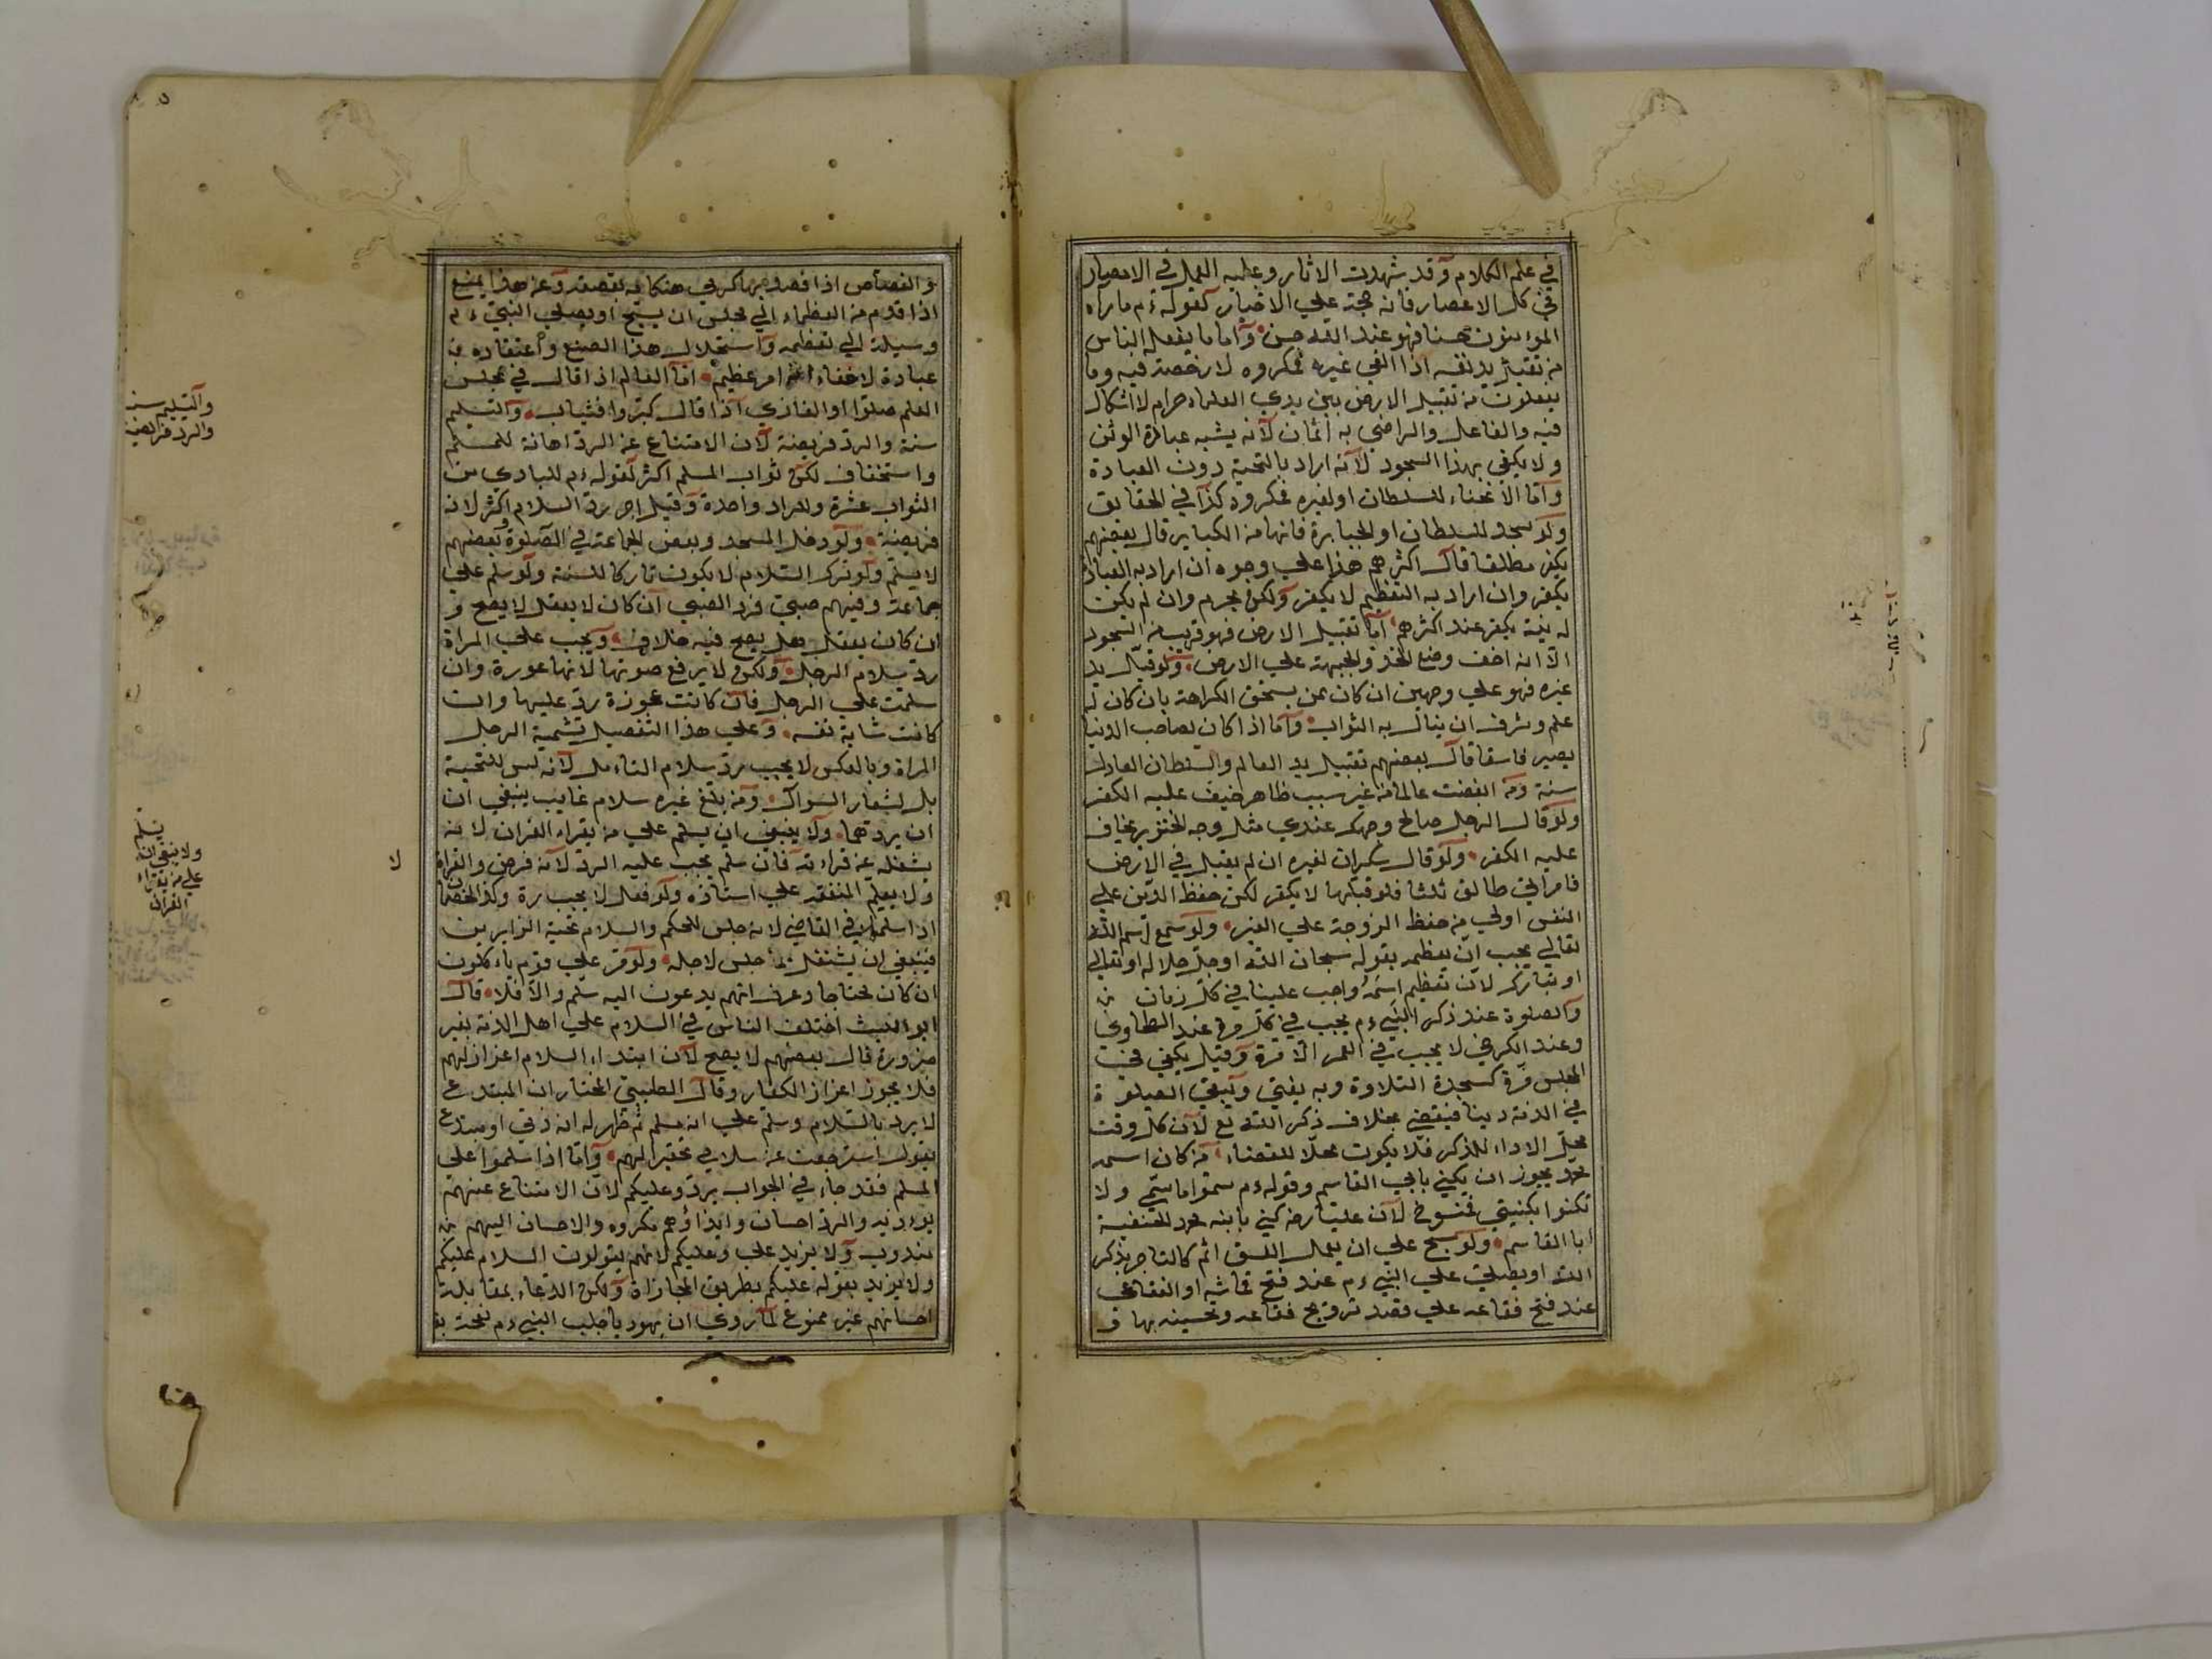 في علم الكلام وقد شهدت الاثار وعليه العمل في الامصار
في كل الاعصار فانه حجة علي الاخيار لقوله ءم ما راه
المؤمنون حسنا فهو عند الله حسن واما ما يفعله الناس
من تقبيل يد نفسه اذا القي غيره فمكروه لا رخصة فيه وما
يفعلون من تقبيل الارض بين يدي العلماء حرام لا اشكال
فيه والفاعل والراضي به اثمان لانه يشبه عبادة الوثن
ولا يكفر بهذا السجود لانه اراد بالتحية دون العبادة
واما الانحناء للسلطان او لغيره فمكروه كذا في الحقايق
ولو سجد للسلطان او الجبابرة فانها من الكباير قال بعضهم
يكفر مطلقا قال اكثرهم هذا علي وجوه ان اراد به العبادة
يكفر وان اراد به التعظيم لا يكفر ولكن يحرم وان لم يكن
له نية يكفر عند اكثرهم اما تقبيل الارض فهو قريب من السجود
الا انه اخف وضع الخد والجبهة علي الارض ولو قبل يد
غيره فهو علي وجهين ان كان ممن يستحق الكراهة بان كان له
علم وشرف ان ينال به الثواب واما اذا كان لصاحب الدنيا
يصير فاسقا قال بعضهم تقبيل يد العالم والسلطان العادل
سنة ومن ابغضت عالما من غير سبب ظاهر خيف عليه الكفر
ولو قال الرجل صالح وجهك عندي مثل وجه الخنزير يخاف
عليه الكفر ولو قال سكران لغيره ان لم يقبل في الارض
فامراتي طالق ثلثا فلو قبلها لا يكفر لكن حفظ الدين علي
النفس اولي من حفظ الزوجة علي الغير ولو سمع اسم الله
تعالي يجب ان يعظم بقوله سبحان الله او جل جلاله او تعالي
او تبارك لان تعظيم اسمه واجب علينا في كل زمان
والصلوة عند ذكر النبي ءم يجب في كل مرة عند الطحاوي
وعند الكرخي لا يجب في العمر الا مرة وقيل يكفي في
المجلس مرة كسجدة التلاوة وبه يفتي وتبقي الصلوة
في الذمة دينا فيقضي بخلاف ذكر الله تع لان كل وقت
محل الاداء للذكر فلا يكون محلا للقضاء من كان اسمه
محمد يجوز ان يكني بابي القاسم وقوله ءم سموا باسمي ولا
تكنوا بكنيتي فمنسوخ لان عليا رض كني بابنه محمد الحنفية
ابا القاسم ولو سبح علي ان يعمل الفسق اثم كالتاجر يذكر
الله او يصلي علي النبي ءم عند فتح قماشه او الفقاعي
عند فتح فقاعه علي قصد ترويج فقاعه وتحسينه بها و
والقصاص اذا قصد وعن هذا يمنع
اذا قدم من العظماء الي مجلس ان يسبح او يصلي النبي ءم
وسيلة الي تعظيمه واستحلال هذا الصنع واعتقاده
عبادة لا خفاء انه امر عظيم اما العالم اذا قال في مجلس
العلم صلوا او الغازي اذا قال كبروا فيثاب والتسليم
سنة والرد فريضة لان الامتناع عن الرد اهانة للمسلم
واستخفاف لكن ثواب المسلم اكثر لقوله ءم للبادي من
الثواب عشرة وللراد واحدة وقيل اجر رد السلام اكثر لانه
فريضة ولو دخل المسجد وبعض الجماعة في الصلوة وبعضهم
لا يسلم ولو ترك السلام لا يكون تاركا للسنة ولو سلم علي
جماعة وفيهم صبي فرد الصبي ان كان لا يعقل لا يصح و
ان كان يعقل هل يصح فيه خلاف ويجب علي المراة
رد سلام الرجل ولكن لا يرفع صوتها لانها عورة وان
سلمت علي الرجل فان كانت عجوزة رد عليها وان
كانت شابة نفسه وعلي هذا التفصيل تشمية الرجل
المراة وبالعكس لا يجب رد سلام السائل لانه ليس للتحية
بل لشعار السؤال ومن بلغ غيره سلام غايب ينبغي ان
ان يردهما ولا ينبغي ان يسلم علي من يقراء القران لانه
يشغله عن قراءته فان سلم يجب عليه الرد لانه فرض والقراة
ولا يعلم المتفقه علي استاذه ولو فعل لا يجب رده وكذا الخصمان
اذا سلموا في القاضي لانه جلس للحكم والسلام تحية الزايرين
فينبغي ان يشتغل بما جلس لاجله ولو مر علي قوم ياءكلون
ان كان محتاجا وعرف انهم يدعون اليه سلم والا فلا قال
ابو الليث اختلف الناس في السلام علي اهل الذمة بغير
ضرورة قال بعضهم لا يصح لان ابتداء السلام اعزاز لهم
فلا يجوز اعزاز الكفار وقال الطيبي المختار ان المبتدع
لا يرد بالسلام وسلم علي انه مسلم ثم ظهر له انه ذمي او مبتدع
يقول استرجعت عن سلامي تحقيرا لهم واما اذا سلموا علي
المسلم فقد جاء في الجواب يرد وعليكم لان الامتناع عنهم
يوءذيه والرد احسان وايذاؤهم مكروه والاحسان اليهم
مندوب ولا يزيد علي وعليكم لانهم يقولون السلام عليكم
ولا يزيد بقوله عليكم بطريق المجازاة ولكن الدعاء بمقابلة
احسانهم غير ممنوع لما روي ان يهوديا حلب النبي ءم نعجة
والتسليم سنة
والرد فريضة
ولا ينبغي ان يسلم
علي من يقراء
القران
لا